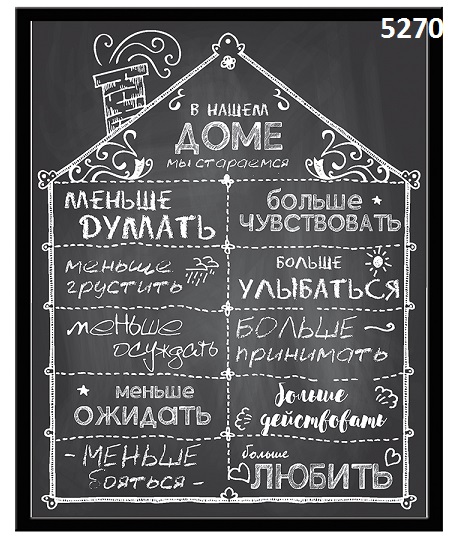 5270
В НАШЕМ
ДОМЕ
мы стараемся
МЕНЬШЕ
ДУМАТЬ
больше
ЧУВСТВОВАТЬ
меньше
грустить
БОЛЬШЕ
УЛЫБАТЬСЯ
меньше
осуждать
БОЛЬШЕ
принимать
меньше
ОЖИДАТЬ
больше
действовать
- МЕНЬШЕ
бояться -
больше
ЛЮБИТЬ